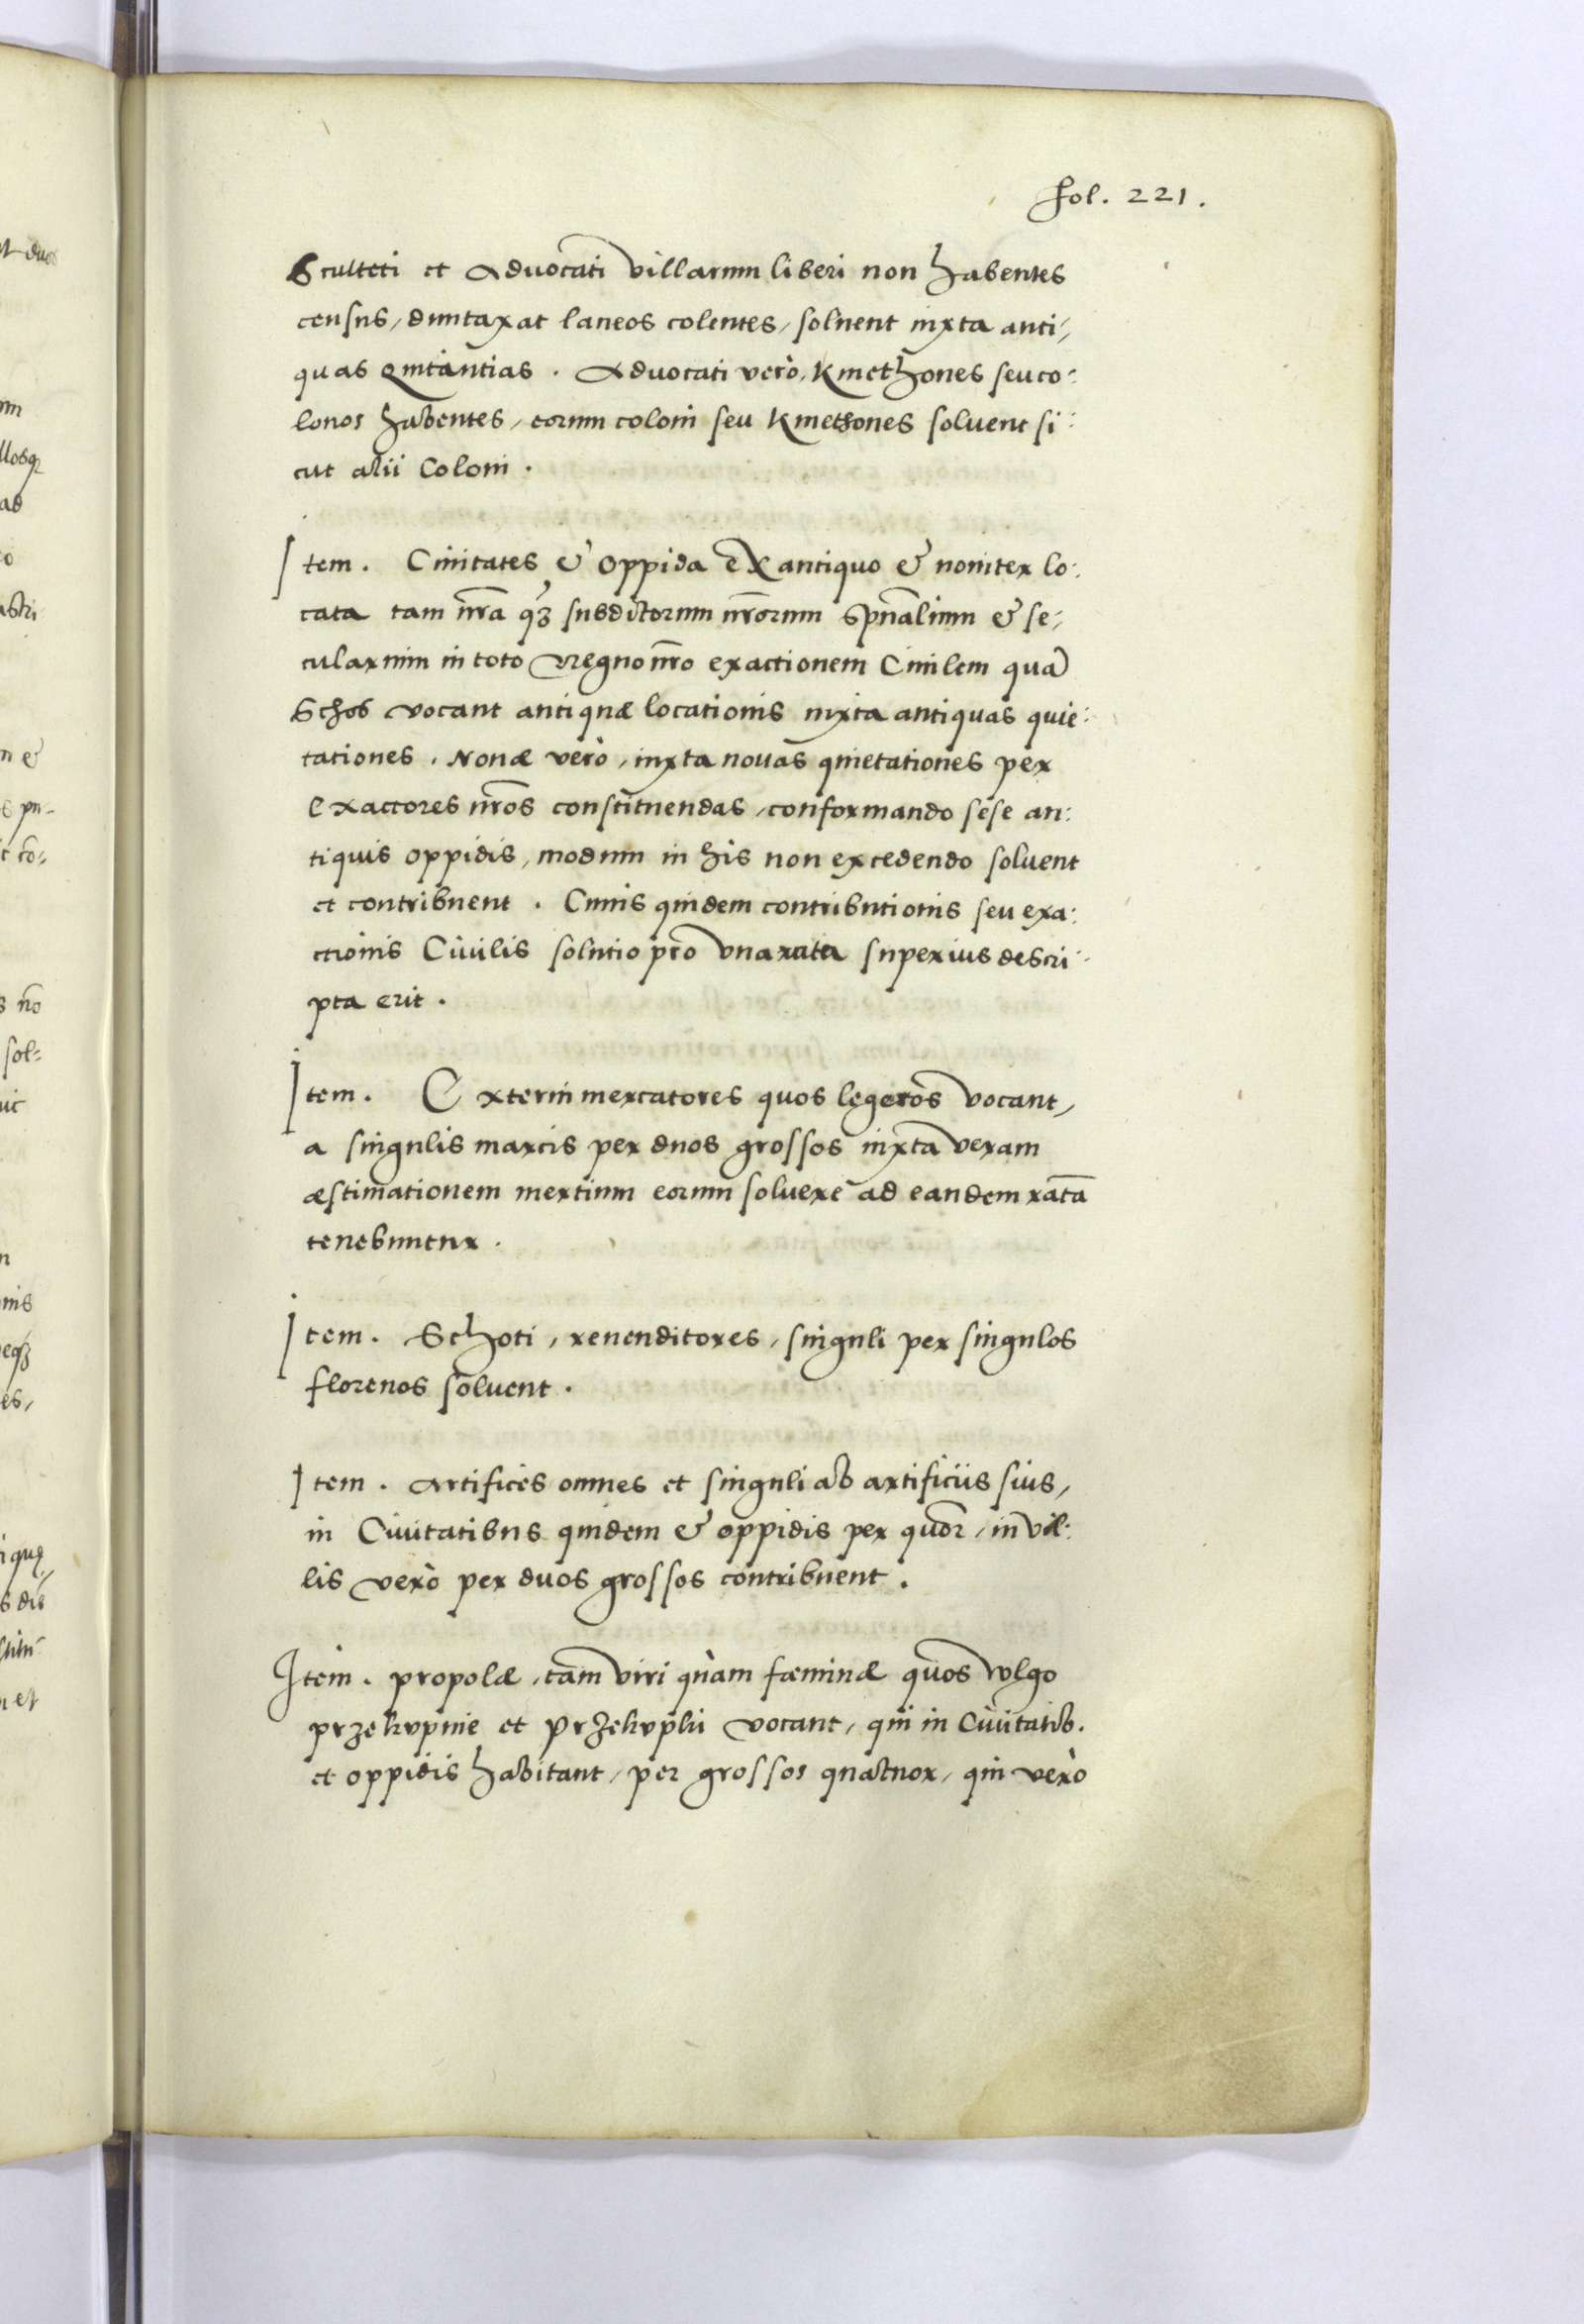 fol. 221.
Sculteti et Advocati villarum liberi non habentes
census, duntaxat laneos colentes, soluent iuxta anti,
quas Quitantias. Advocati verò, Kmethones seu co:
lonos habentes, eorum coloni seu Kmethones soluent si:
cut alii Coloni.
Item. Ciuitates & oppida ex antiquo & nouiter lo:
cata tam nr̃a q̃ꝫ subditorum nr̃orum Spũalium & se,
cularium in toto Regno nr̃o exactionem Ciuilem quã
Schos vocant antiquæ locationis iuxta antiquas quie:
tationes. Nouæ verò, iuxta nouas quietationes per
Exactores nr̃os constituendas, conformando sese an:
tiquis oppidis, modum in his non excedendo soluent
et contribuent. Cuius quidem contributionis seu exa:
ctionis Ciuilis solutio pro vna rata superius descri:
pta erit.
Item. Externi mercatores quos lęgeros vocant,
a singulis marcis per duos grossos iuxta veram
æstimationem mertium eorum soluere ad eandem ratã
tenebuntur.
Item. Schoti, reuenditores, singuli per singulos
florenos soluent.
Item. Artifices omnes et singuli ab artificiis suis,
in Ciuitatibus quidem & oppidis per quor̃, in vil:
lis verò per duos grossos contribuent.
Item. propolæ, tam viri quàm fæminæ quos vulgo
przekupnie et Przekupki vocant, qui in Ciuitatib.
et oppidis habitant, per grossos quatuor, qui verò